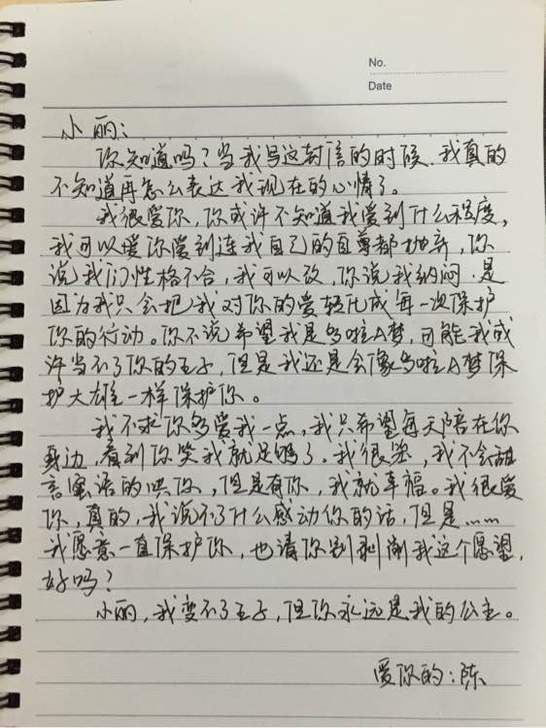 No.
Date
小丽：
你知道吗？当我写这封信的时候，我真的
不知道再怎么表达我现在的心情了。
我很爱你，你或许不知道我爱到什么程度，
我可以爱你爱到连我自己的自尊都抛弃，你
说我们性格不合，我可以改，你说我纳闷，是
因为我只会把我对你的爱转化成每一次保护
你的行动。你不说希望我是多啦A梦，可能我或
许当不了你的王子，但是我还是会像多啦A梦保
护大雄一样保护你。
我不求你多爱我一点，我只希望每天陪在你
身边，看到你笑我就足够了。我很笨，我不会甜
言蜜语的哄你，但是有你，我就幸福。我很爱
你，真的，我说不了什么感动你的话，但是……
我愿意一直保护你，也请你别剥削我这个愿望，
好吗？
小丽，我变不了王子，但你永远是我的公主。
爱你的：陈